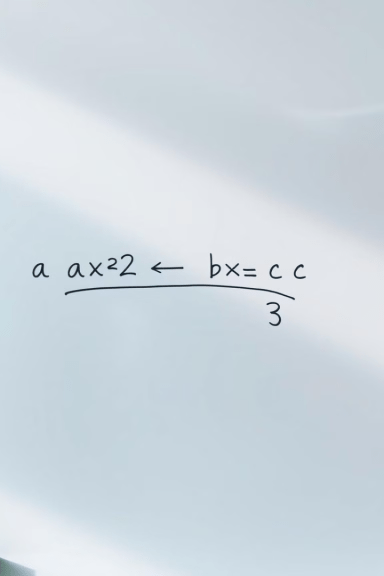 a ax²2 ← bx= c c
3